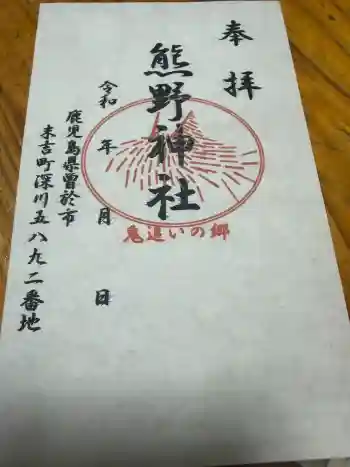 奉拝
熊野神社
令和 年 月 日
鹿児島県曽於市
末吉町深川五八九二番地
鬼追いの郷